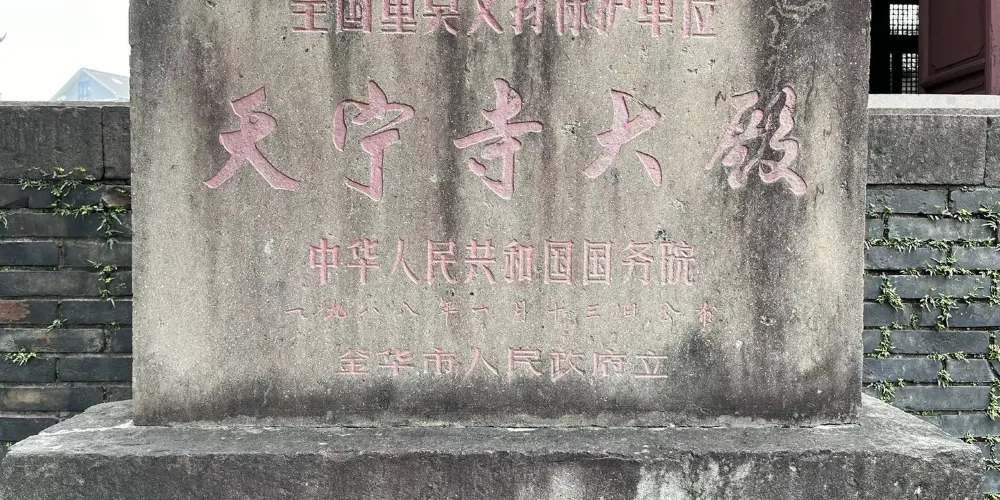 全国重点文物保护单位
天宁寺大殿
中华人民共和国国务院
一九八八年一月十三日公布
金华市人民政府立